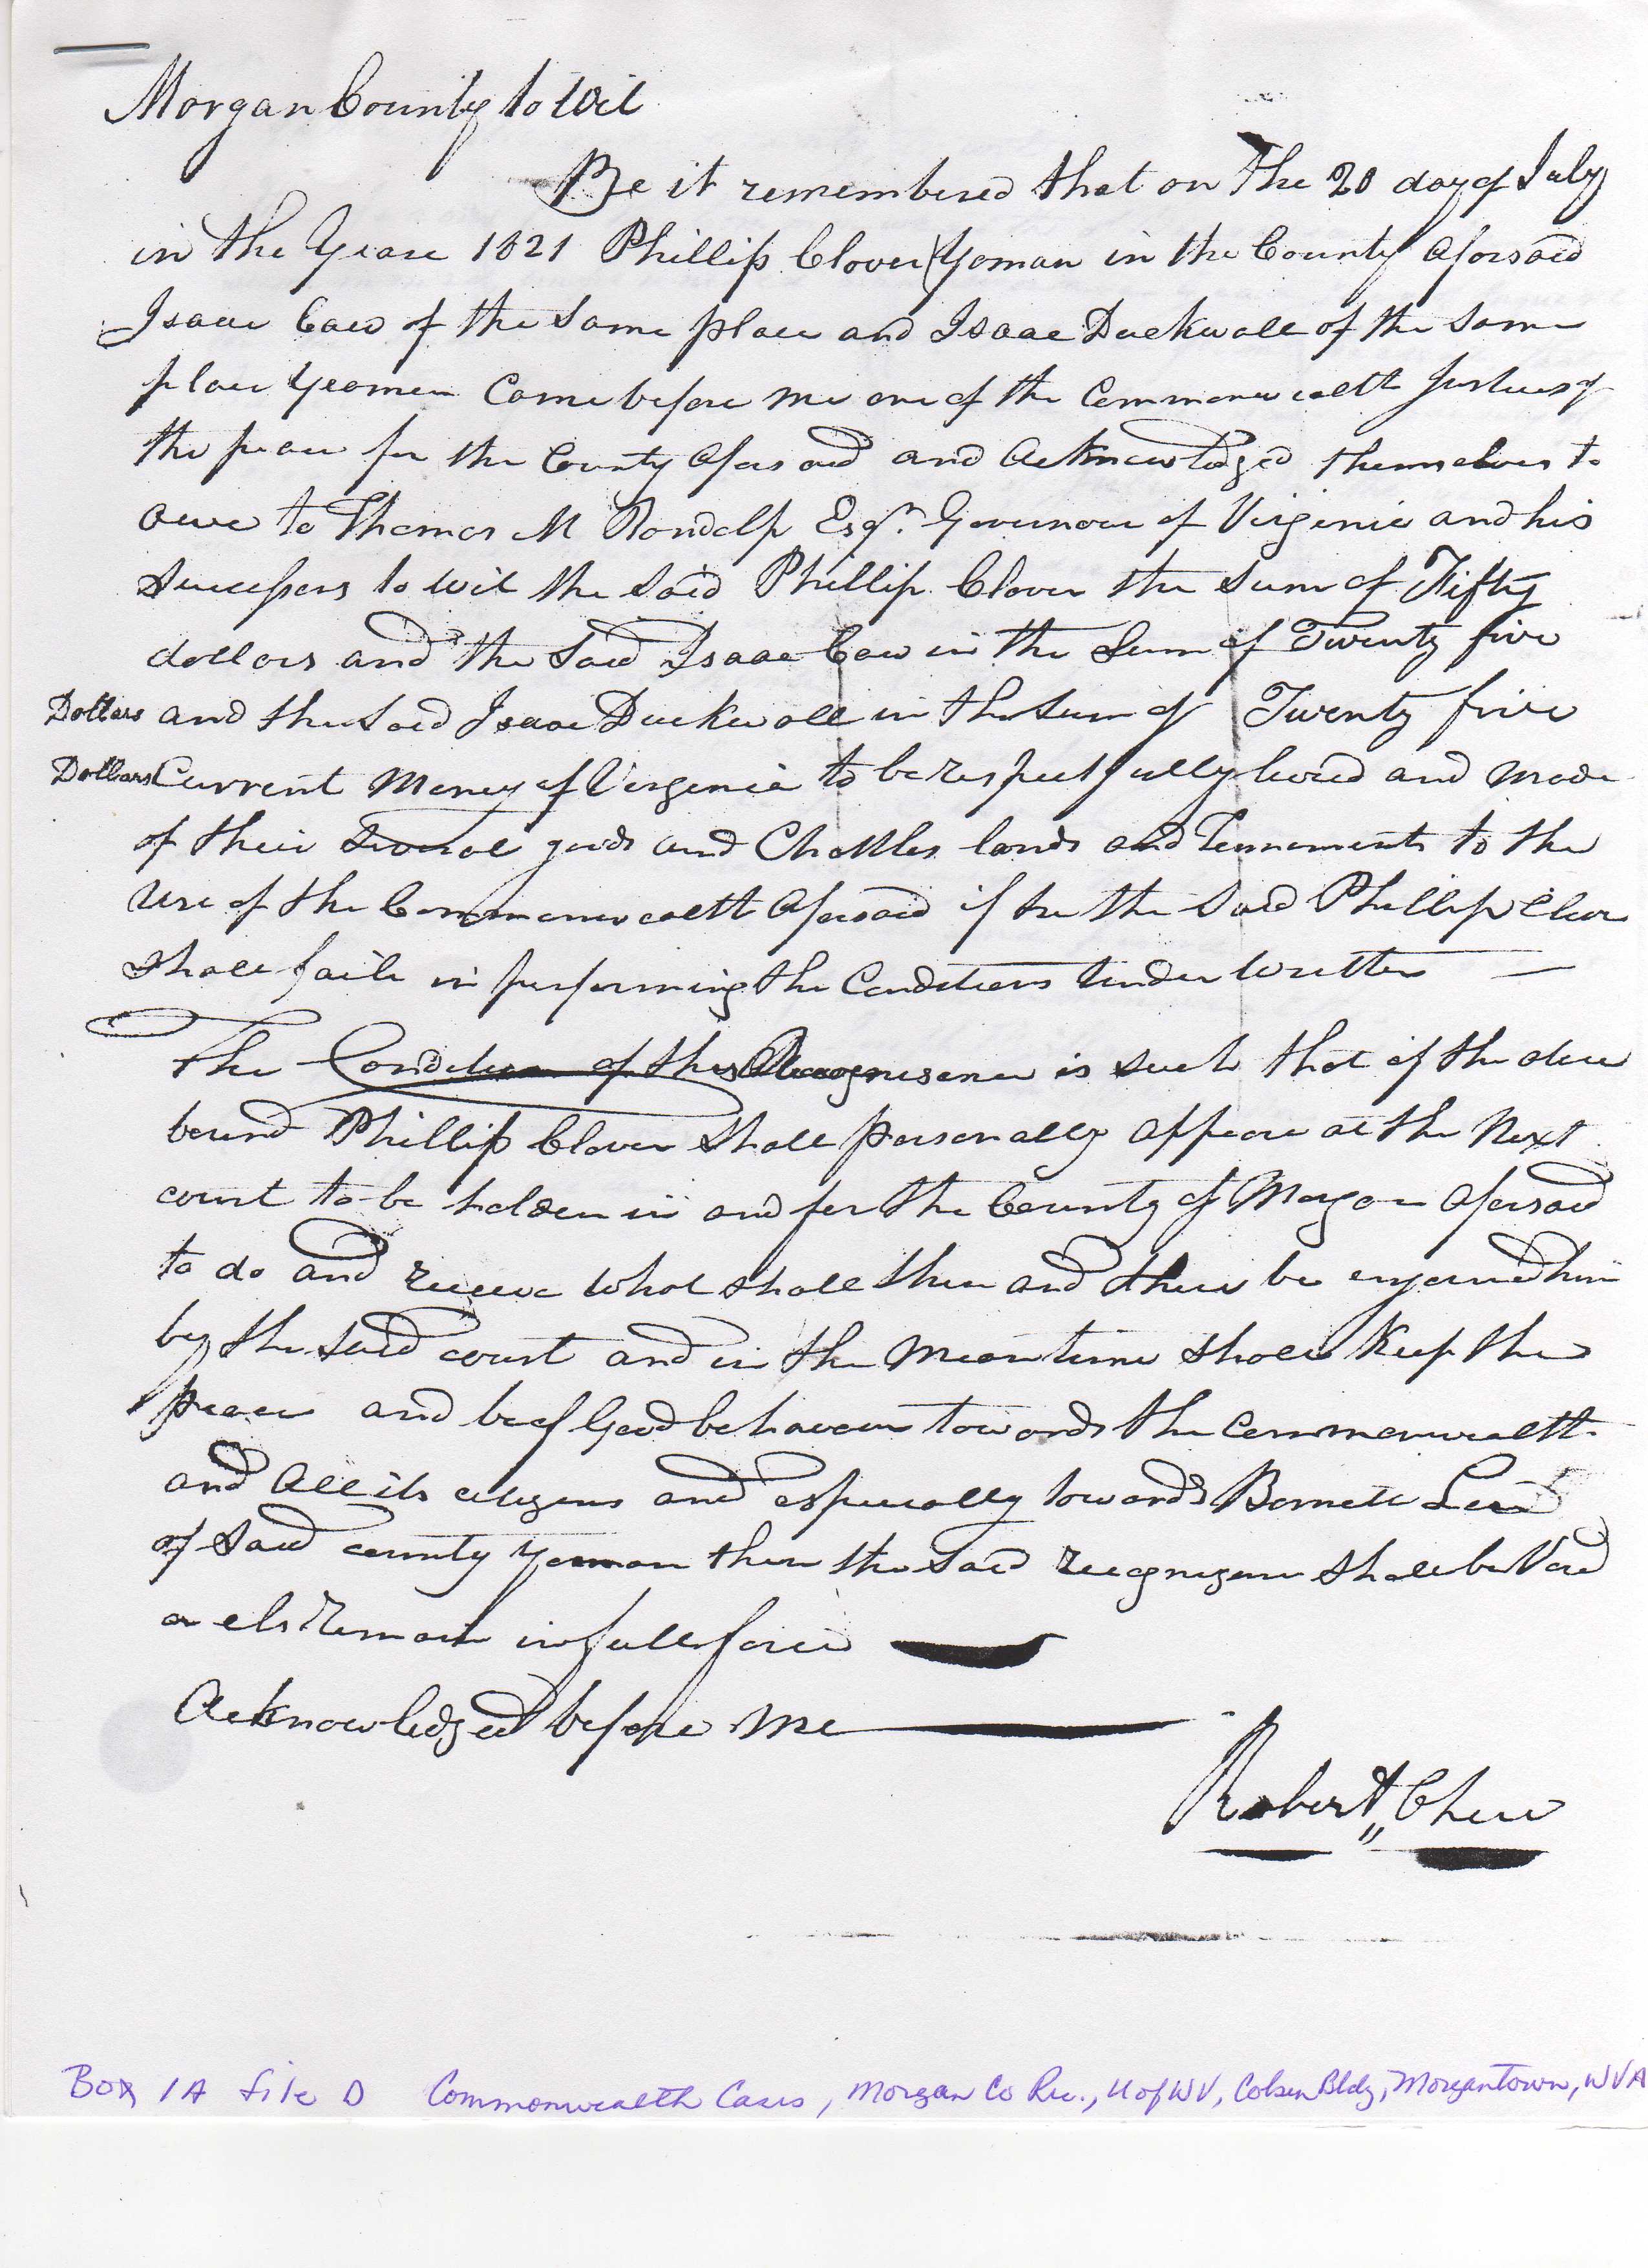 Morgan County to Wit
Be it remembered that on the 20 day of July
in the Yeare 1821 Phillip Clover Yoman in the County Aforsaid
Isaac Caw of the same place and Isaac Duckwall of the same
place Yeomen Came before me one of the Commonwealth Justices of
the peace for the County Aforsaid and Acknowledged themselves to
owe to Thomas M Rondolp Esqr. Governour of Virginia and his
Successors to wit the said Phillip Clover the sum of Fifty
dollors and the said Isaac Caw in the Sum of Twenty five
Dollars and the said Isaac Duckwall in the Sum of Twenty five
Dollars Current Money of Virginia to be respectfully levied and made
of their goods and Chattles lands and Tennements to the
use of the Commonwealth Aforsaid if he the said Phillip Clover
shall faile in performing the Conditions Under Written
The Condition of this Recognisance is such that if the above
bound Phillip Clover shall personally appeare at the Next
court to be holden in and for the County of Morgan Aforsaid
to do and receive what shall then and there be enjoined him
by the said court and in the meantime shall Keep the
peace and be of Good behaveour towards the Commonwealth
and All its citizens and especially towards Barnett
of said county Yeoman then the said recognizance shall be Void
or els remain in full force
Acknowledged before me
Robert Chew
Box 1A file D Commonwealth Cases, Morgan Co Rec., U of WV, Colson Bldg, Morgantown, WVA